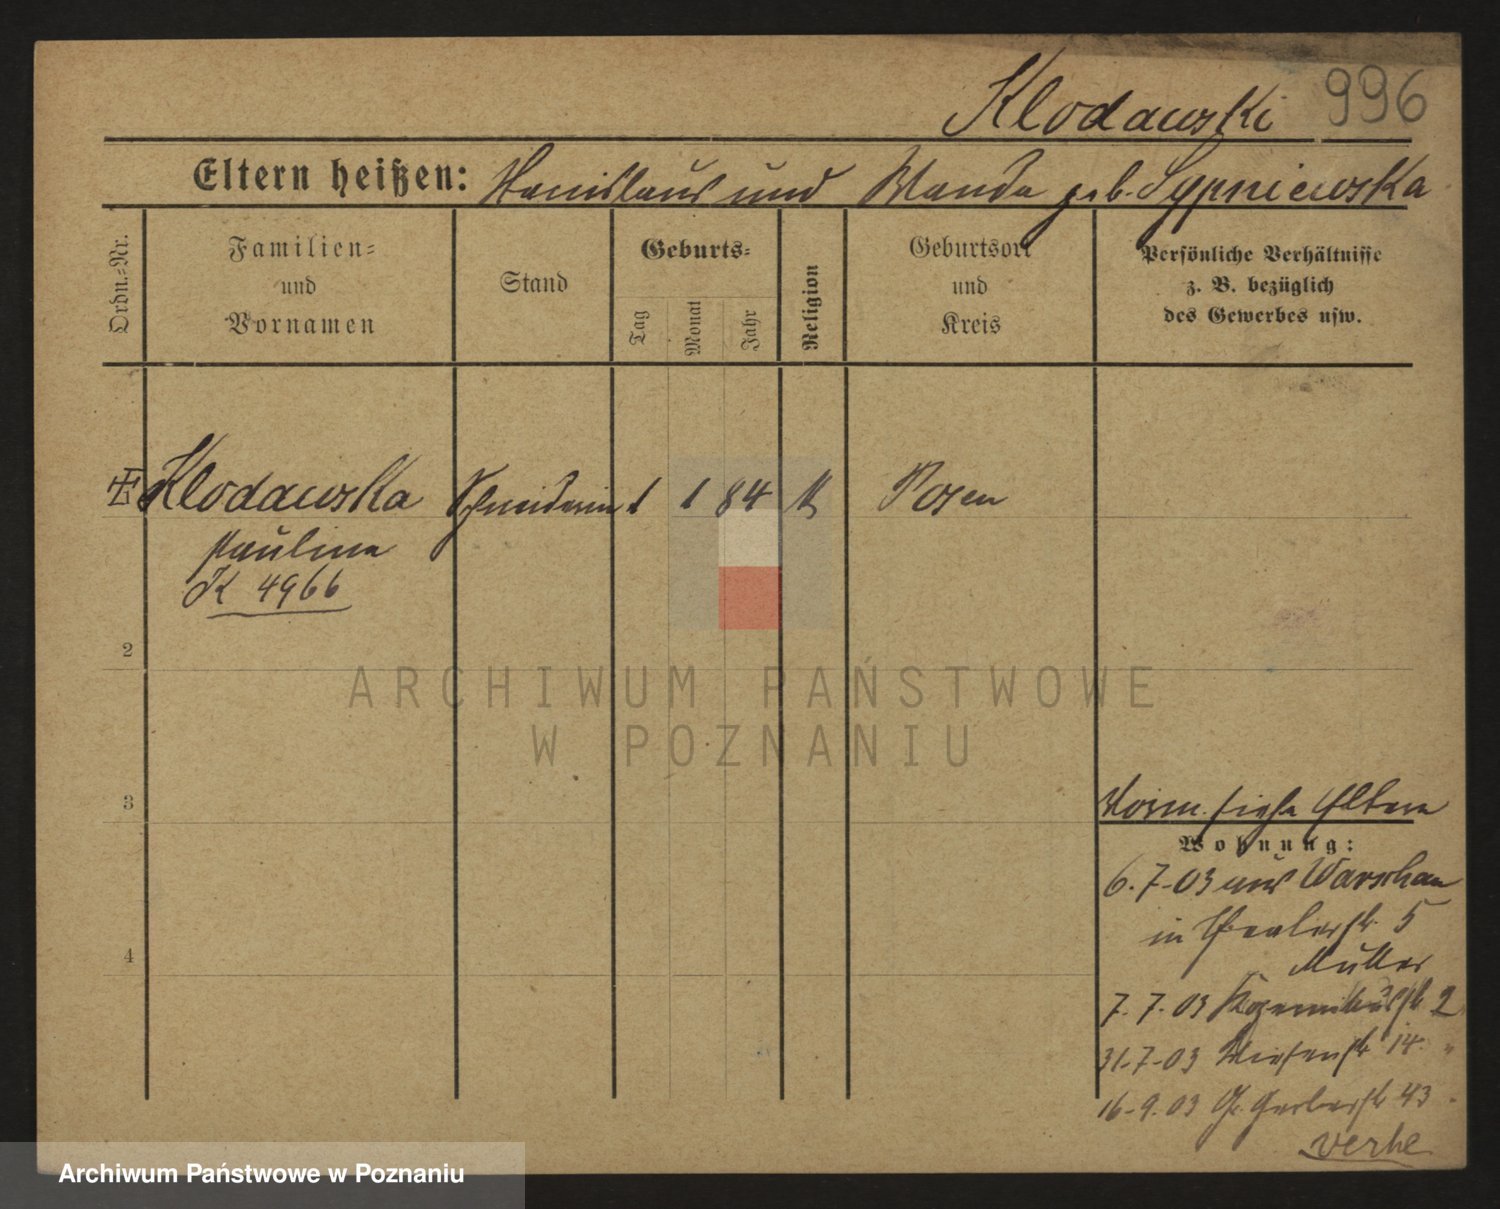 Klodawski 996
Eltern heißen: Stanislaus und Wanda geb. Sypniewska
Ordn.=Nr.
Familien=
und
Vornamen
Stand
Geburts=
Tag
Monat
Jahr
Religion
Geburtsort
und
Kreis
Persönliche Verhältnisse
z. B. bezüglich
des Gewerbes usw.
Klodawska Schneiderin 1 1 84 k Posen
Pauline
K 4966
2
3
4
ARCHIWUM PAŃSTWOWE
W POZNANIU
siehe Eltern
Wohnung:
6.7-03 aus Warschau
in 5
Müller
7.7.03 2
31-7-03 Wiesenstr 14 "
16-9.03 Gr. Gerberstr 43
verhe
Archiwum Państwowe w Poznaniu